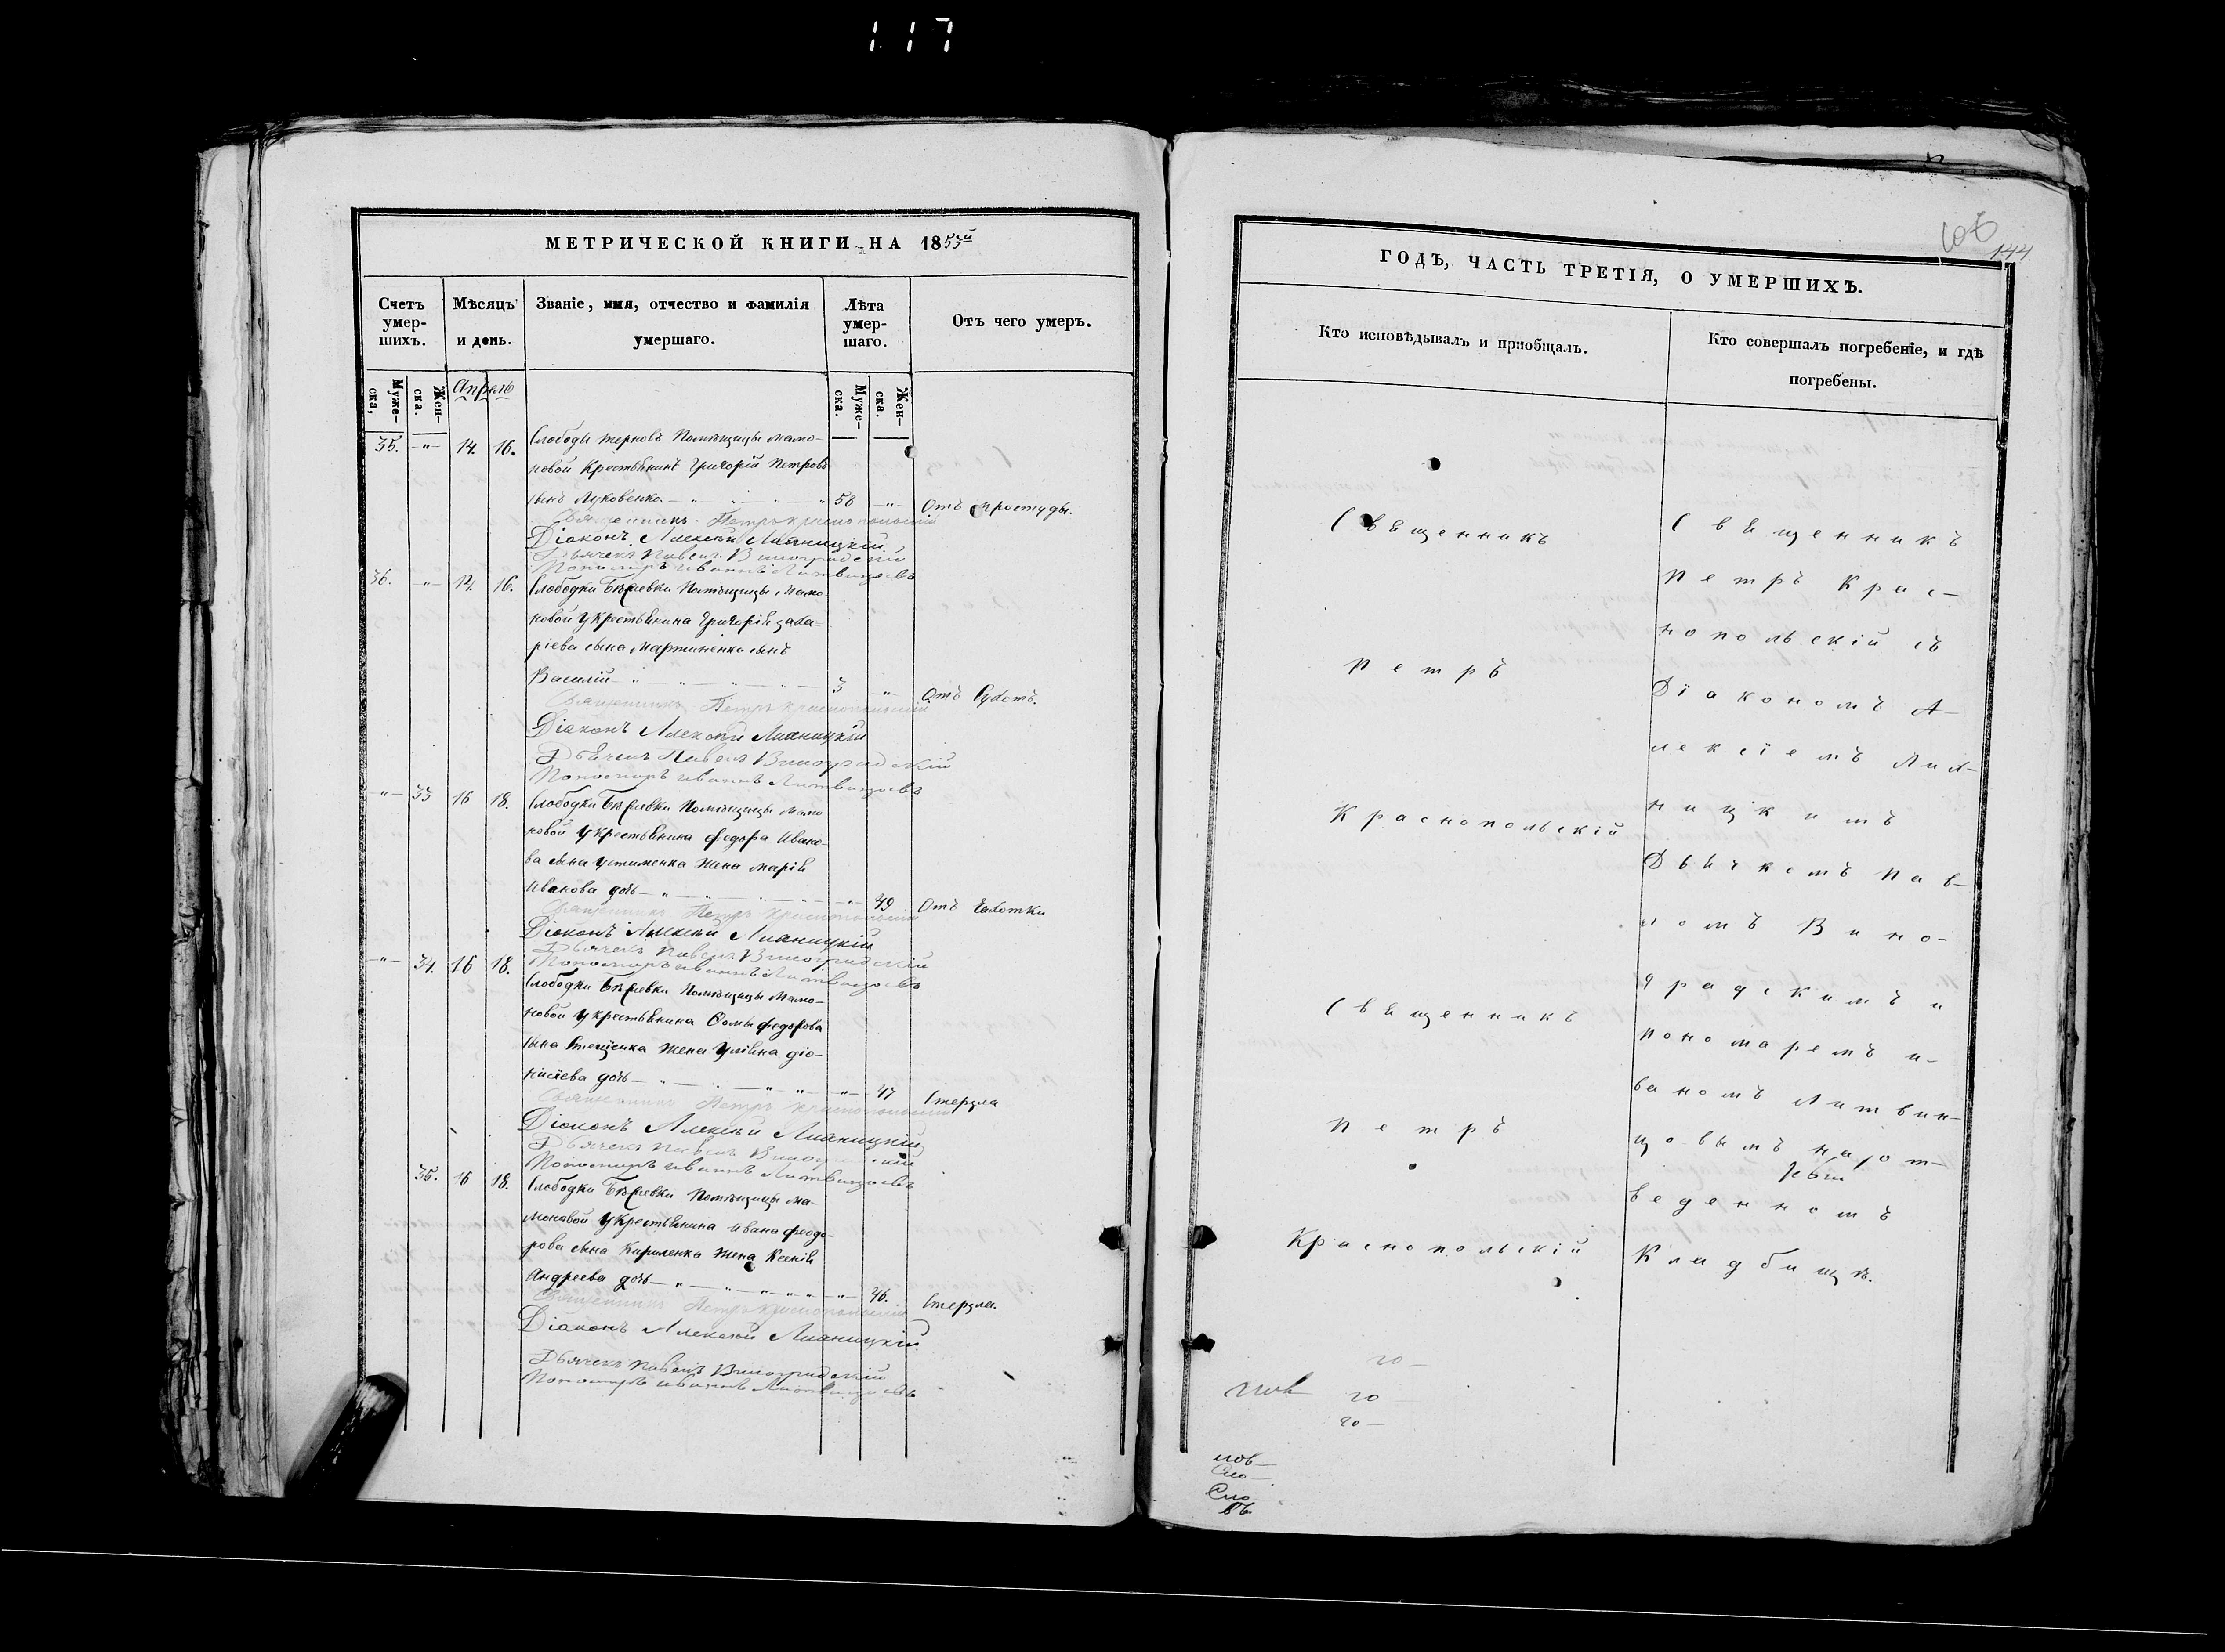 117
МЕТРИЧЕСКОЙ КНИГИ НА 1855й
Счетъ умер-шихъ.
Мѣсяцъ и день.
Званіе, имя, отчество и фамилія умершаго.
Лѣта умер-шаго.
Отъ чего умеръ.
Муже-ска,
Жен-ска.
Апрель
Муже-ска.
Жен-ска.
35. -"- 14. 16. Слободы Терновъ Помѣщицы Мамо-
новой Крестьянинъ Григорій Петровъ
сынъ Луковенко 58 -"- Отъ простуды.
Священникъ Петръ Краснопольскій
Діаконъ Алексѣй Лияницкій
Дьячекъ Павелъ Виноградскій
Пономарь Иванъ Литвинцовъ
36. -"- 14. 16. Слободки Бѣляевки Помѣщицы Мамо-
новой у Крестьянина Григорія Заха-
ріева сына Мартиненка сынъ
Василій 3 -"- Отъ Сухотъ.
Священникъ Петръ Краснопольскій
Діаконъ Алексѣй Лияницкій
Дьячекъ Павелъ Виноградскій
Пономарь Иванъ Литвинцовъ
-"- 33 16 18. Слободки Бѣляевки Помѣщицы Мамо
новой у Крестьянина Федора Ивано-
ва сына Устименка жена Марія
Иванова дочь -"- 49 Отъ Чахотки
Священникъ Петръ Краснопольскій
Діаконъ Алексѣй Лияницкій
Дьячекъ Павелъ Виноградскій
Пономарь Иванъ Литвинцовъ
-"- 34. 16 18. Слободки Бѣляевки Помѣщицы Мамо-
новой у Крестьянина Фомы Федорова
сына жена Уліяна Діо-
нисіева дочь -"- 47
Священникъ Петръ Краснопольскій
Діаконъ Алексѣй Лияницкій
Дьячекъ Павелъ Виноградскій
Пономарь Иванъ Литвинцовъ
35. 16 18. Слободки Бѣляевки Помѣщицы Ма-
моновой у Крестьянина Ивана Феодо-
рова сына Кириленка жена Ксенія
Андреева дочь -"- 46.
Священникъ Петръ Краснопольскій
Діаконъ Алексѣй Лияницкій
Дьячекъ Павелъ Виноградскій
Пономарь Иванъ Литвинцовъ
144.
ГОДЪ, ЧАСТЬ ТРЕТІЯ, О УМЕРШИХЪ.
Кто исповѣдывалъ и пріобщалъ.
Кто совершалъ погребеніе, и гдѣ
погребены.
Священникъ
Петръ
Краснопольскій
Священникъ
Петръ
Краснопольскій
Священникъ
Петръ Крас-
нопольскій съ
Діакономъ А-
лексіемъ Лия-
ницкимъ
Дьячкомъ Пав-
ломъ Вино-
градскимъ и
пономаремъ И-
ваномъ Литвин-
цовымъ на от-
веденномъ
Кладбищѣ.
20 —
20 —
20 —